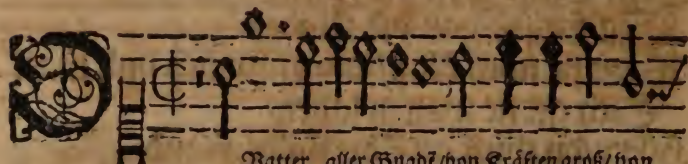 O Vatter aller Gnadē/von Kräften groß/von